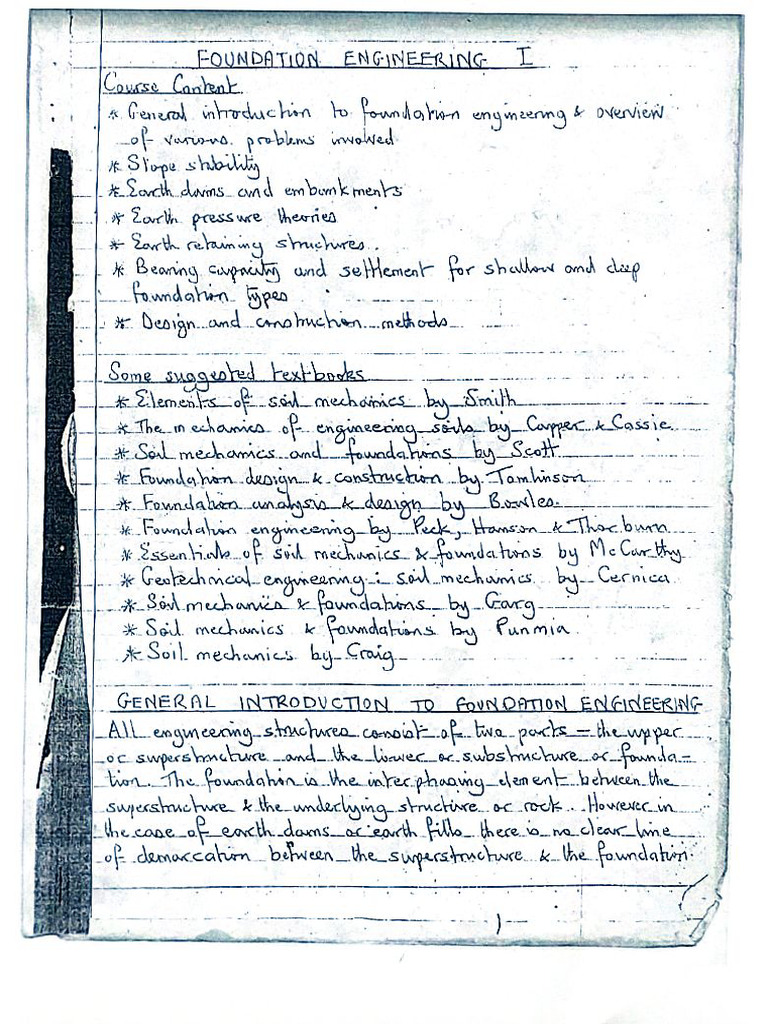 FOUNDATION ENGINEERING I
Course Content
* General introduction to foundation engineering & overview
of various problems involved
* Slope stability
* Earth dams and embankments
* Earth pressure theories
* Earth retaining structures.
* Bearing capacity and settlement for shallow and deep
foundation types
* Design and construction methods
Some suggested textbooks
* Elements of soil mechanics by Smith
* The mechanics of engineering soils by Capper & Cassie
* Soil mechanics and foundations by Scott
* Foundation design & construction by Tomlinson
* Foundation analysis & design by Bowles.
* Foundation engineering by Peck, Hanson & Thorburn
* Essentials of soil mechanics & foundations by McCarthy
* Geotechnical engineering: soil mechanics by Cernica
* Soil mechanics & foundations by Garg
* Soil mechanics & foundations by Punmia
* Soil mechanics by Craig
GENERAL INTRODUCTION TO FOUNDATION ENGINEERING
All engineering structures consist of two parts – the upper
or superstructure and the lower or substructure or founda-
tion. The foundation is the interphasing element between the
superstructure & the underlying structure or rock. However in
the case of earth dams or earth fills there is no clear line
of demarcation between the superstructure & the foundation.
1